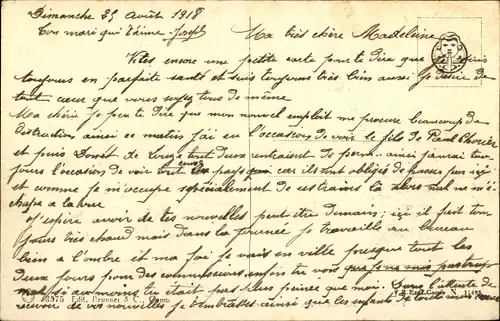 Dimanche 25 Août 1918
Ton mari qui t'aime. Joseph
Ma très chère Madeleine
Vite encore une petite carte pour te dire que je suis
toujours en parfaite santé et suis toujours très bien aussi je désire de
tout cœur que vous soyez tous de même
Ma chérie je peu te dire que mon nouvel emploit me procure beaucoup de
distraction ainsi ce matin j'ai eu l'occasion de voir le fils de Paul
et puis de tout deux rentraient de perm. ainsi j'aurai tou
jours l'occasion de voir tout les pays car ils sont obligés de passer par ici
et comme je m'occupe spécialement de ces trains là alors nul ne m'é
chape a la vue
J'espère avoir de tes nouvelles peut être demain; ici il fait tou
jours très chaud mais dans la journée je travaille au bureau
bien a l'ombre et ma foi je vais en ville presque tout les
deux jours pour des commissions enfin tu vois que je ne suis pas trop
mal si au moins tu était pas plus peinée que moi. Dans l'attente de
recevoir de vos nouvelles je t'embrasse ainsi que les enfants de
Edit. Brunner & C., Como